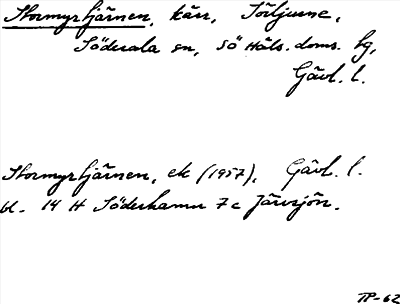 Stormyrtjärnen, kärr, Törljusne,
Söderala sn, Sö Häls. doms. hg,
Gävl. l.
Stormyrtjärnen, ek (1957), Gävl. l.
bl. 14 H Söderhamn 7c Järvsjön.
TP-62